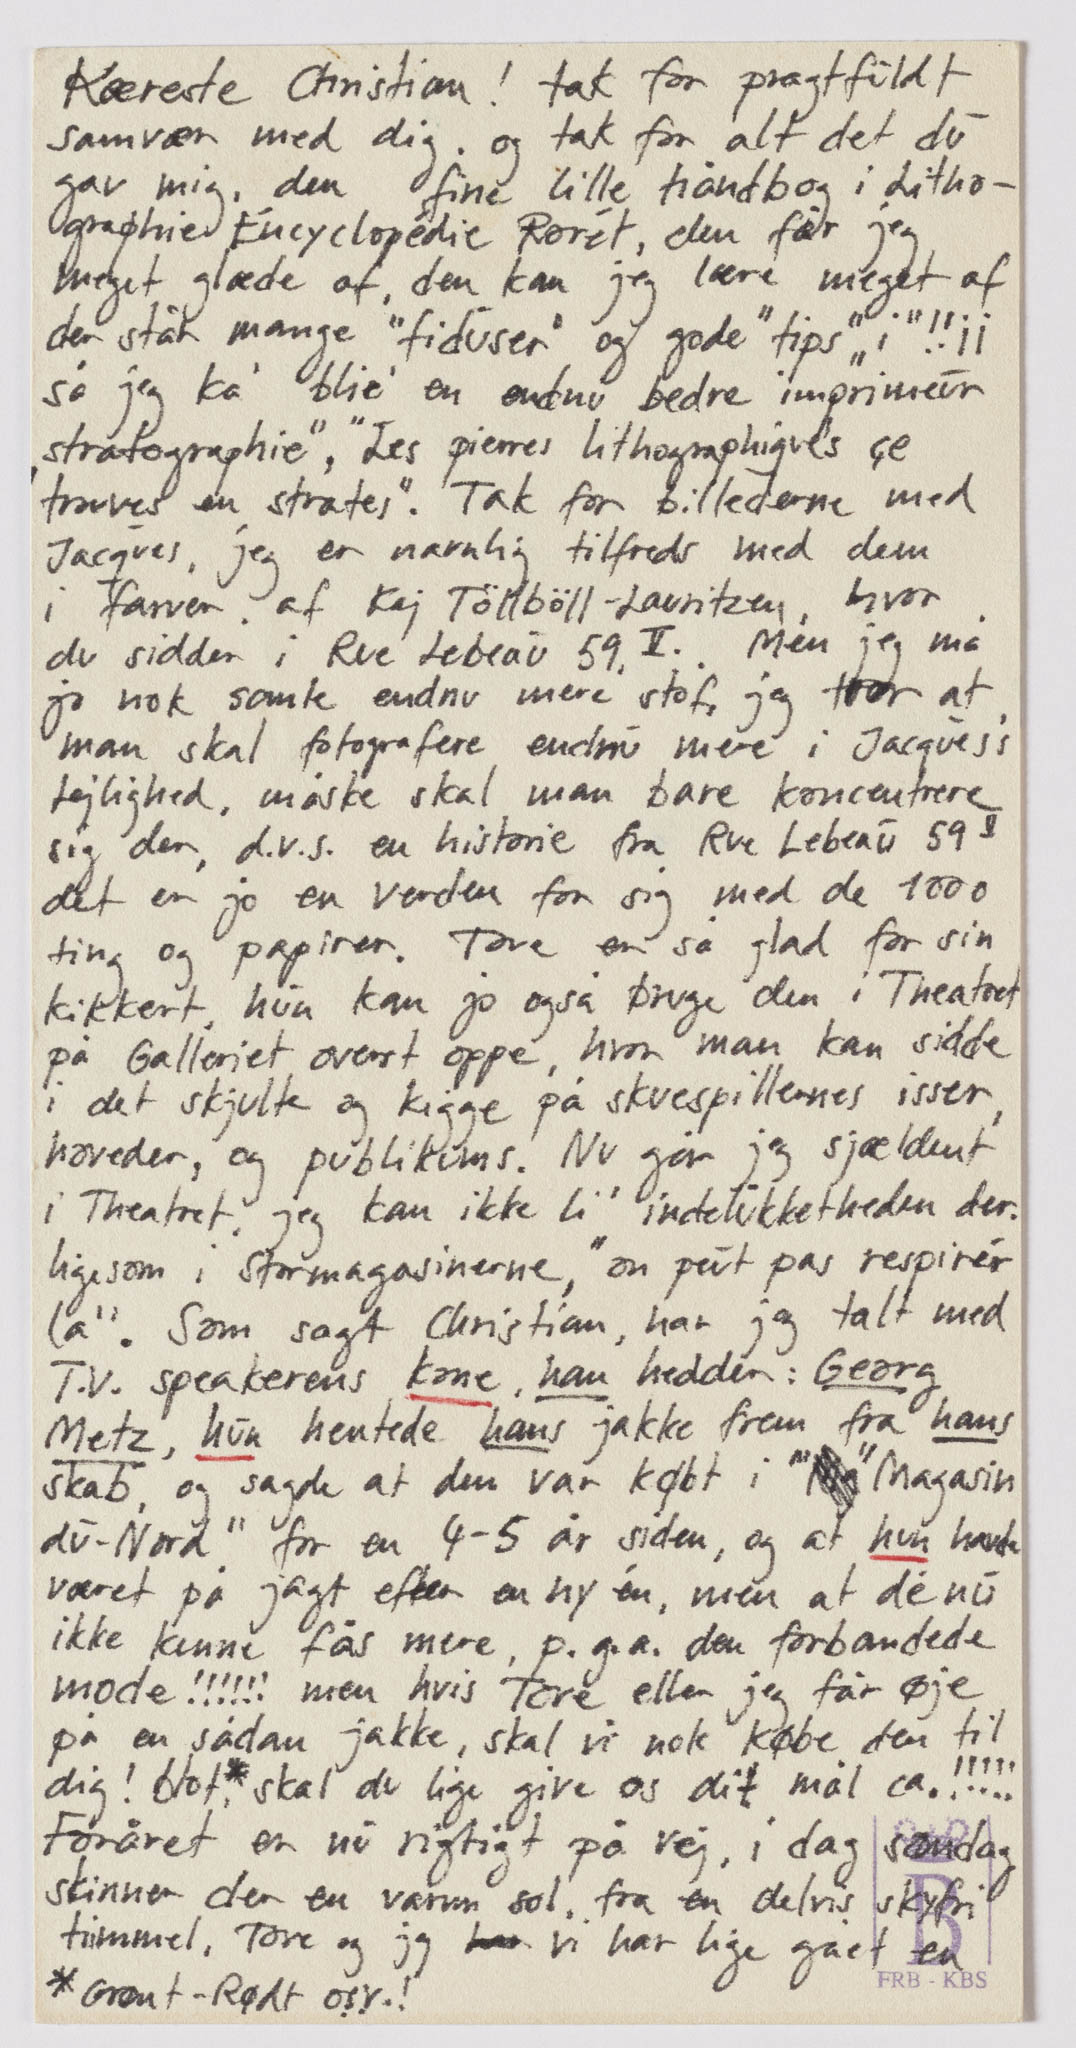 Kæreste Christian! tak for pragtfuldt
samvær med dig. og tak for alt det du
gav mig, den fine lille håndbog i Litho-
graphie Encyclopédie Rorét, den får jeg
meget glæde af, den kan jeg lære meget af
der står mange "fiduser" og gode "tips" i"!!¡¡
så jeg ka' blie' en endnu bedre imprimeur
"stratographie", "Les pierres lithographiques çe
trouves en strates". Tak for billederne med
Jacques, jeg er navnlig tilfreds med dem
i Farver. af Kaj Töllböll-Lauritzen, hvor
du sidder i Rue Lebeau 59. II. Men jeg må
jo nok samle endnu mere stof, jeg tror at
man skal fotografere endnu mere i Jacques's
Lejlighed, måske skal man bare koncentrere
sig der, d.v.s. en historie fra Rue Lebeau 59 II
det er jo en verden for sig med de 1000
ting og papirer. Tove er så glad for sin
kikkert, hun kan jo også bruge den i Theatret
på Galleriet øverst oppe, hvor man kan sidde
i det skjulte og kigge på skuespillernes isser,
hoveder, og publikums. Nu går jeg sjældent
i Theatret, jeg kan ikke li' indelukketheden der.
ligesom i stormagasinerne, "on peut pas respirér
la". Som sagt Christian, har jeg talt med
T.V. speakerens kone, han hedder: Georg
Metz, hun hentede hans jakke frem fra hans
skab, og sagde at den var købt i "Magasin
du-Nord" for en 4-5 år siden, og at hun havde
været på jagt efter en ny én, men at dé nu
ikke kunne fås mere, p.g.a. den forbandede
mode!!!!!! men hvis Tove eller jeg får øje
på en sådan jakke, skal vi nok købe den til
dig! blot,* skal du lige give os dit mål ca.!!!!!
Foråret er nu rigtigt på vej, i dag søndag
skinner der en varm sol, fra en delvis skyfri
himmel, Tove og jg har vi har lige gået en
*Grønt-Rødt osv.!
B
FRB-KBS